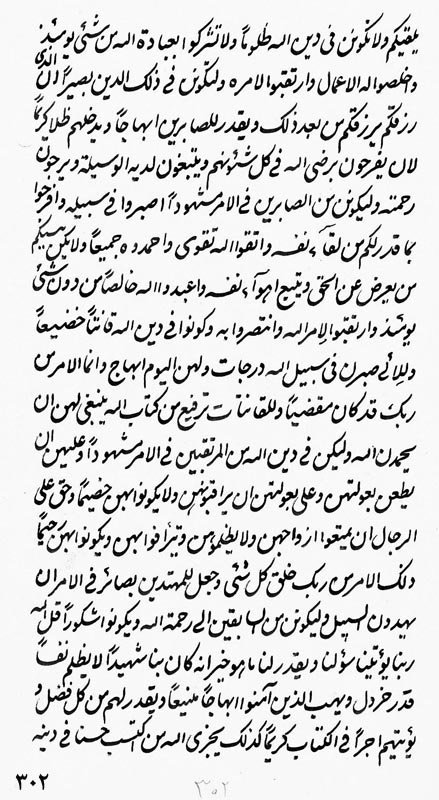 يلعنكم ولا تكونن فى دين الله ظلوما ولا تشركوا بعبادة الله من شئ يومئذ
واخلصوا له الاعمال وارتقبوا الامره وليكونن فى ذلك الدين بصيرا ان الذى
رزقكم يرزقكم من بعد ذلك ويقدر للصابرين ابهاجا ويدخلهم ظلا كريما
لان يفرحون برضى الله فى كل شئونهم ويتبعون لديه الوسيلة ويرجون
رحمته وليكونن من الصابرين فى الامر مشهودا اصبروا فى سبيله وافرحوا
بما قدر لكم من لقاء نفسه واتقوا الله تقوى واحمدوه جميعا ولا يكن مسكنكم
من يعرض عن الحق ويتبع اهواء نفسه واعبدوا الله خالصا من دون شئ
يومئذ وارتقبوا لامر الله وانتصروا به وكونوا فى دين الله قانتا خضيعا
وللائى صبرن فى سبيل الله درجات ولهن اليوم ابهاج وانما الامر من
ربك قد كان مقضيا وللقانتات ترفيع من كتاب الله ينبغى لهن ان
يحمدن الله وليكن فى دين الله من المرتقبين فى الامر مشهودا وعليهن ان
يطعن بعولتهن وعلى بعولتهن ان يراقبوهن ولا يكونوا بهن خصيما وحق على
الرجال ان يمتعوا ازواجهن ولا يظلموهن ويترافوا بهن ويكونوا بهن رحيما
ذلك الامر من ربك خلق كل شئ وجعل للمهتدين بصائر فى الامر ان
يهدون السبيل وليكونن من السابقين الى رحمة الله ويكونوا شكورا قل الله
ربنا يؤتينا سؤلنا ويقدر لنا ما هو خير انه كان بنا شهيدا لا يظلم نفسا
قدر خردل ويهب الذين آمنوا ابهاجا منيعا ويقدر لهم من كل فضل و
يؤتيهم اجرا فى الكتاب كريما كذلك يجزى الله من اكتسب حسنا فى دينه
٣٠٢
٣٠٢